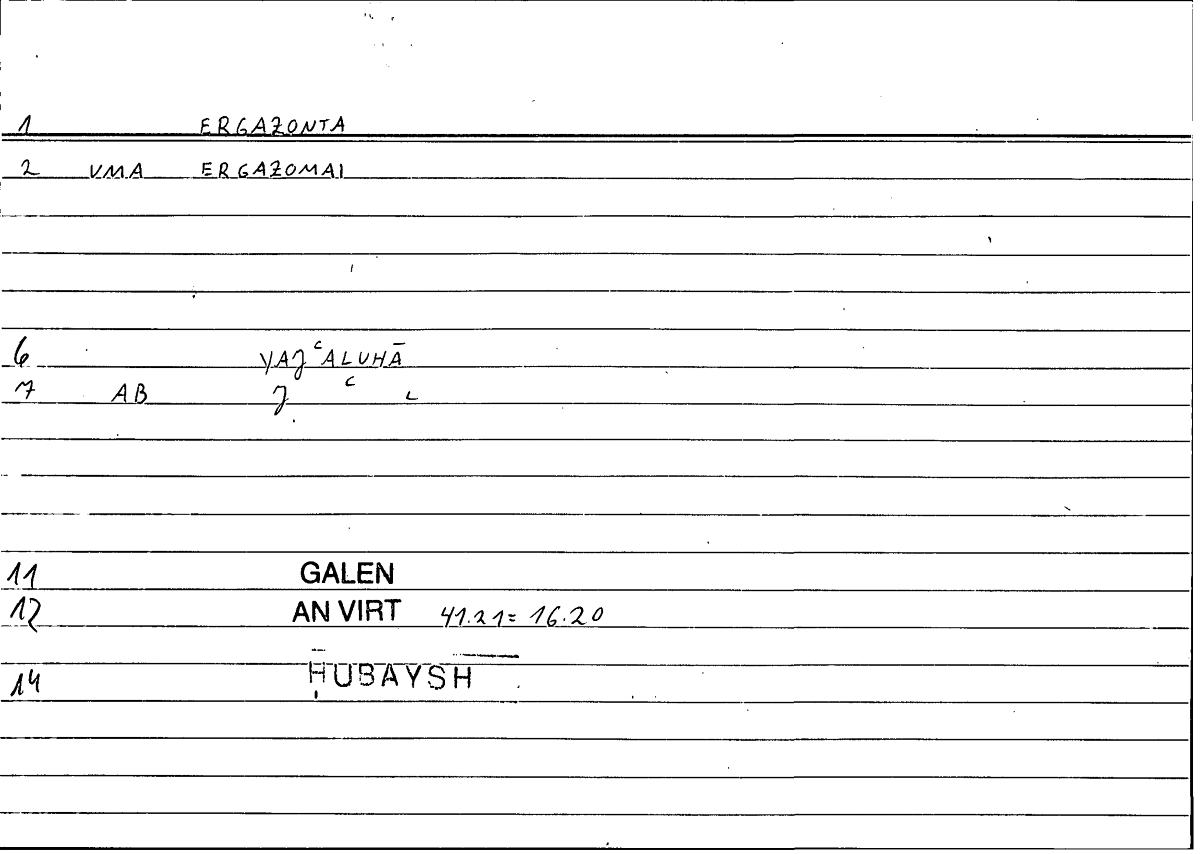 1 ERGAZONTA
2 VMA ERGAZOMAI
6 YAJʿALUHĀ
7 AB J ʿ L
11 GALEN
12 AN VIRT 41.21= 16.20
14 ḤUBAYSH